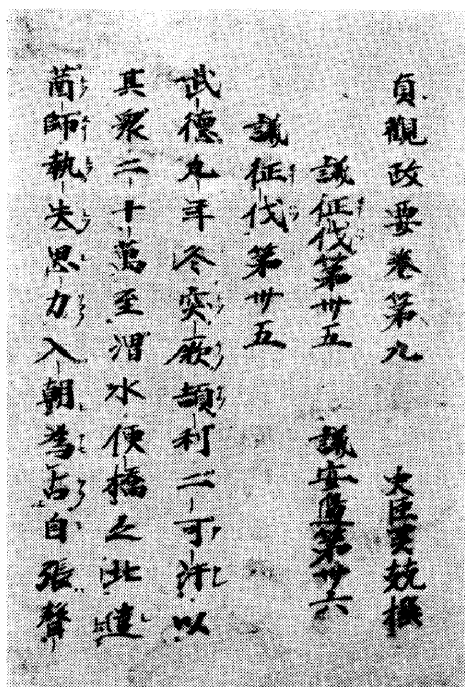 貞觀政要卷第九　史臣吴兢撰
議征伐第卅五　議安邊第卅六
議征伐第卅五
武德九年冬突厥頡利二可汗以
其衆二十萬至渭水便橋之北遣
酋師執失思力入朝為占自張聲